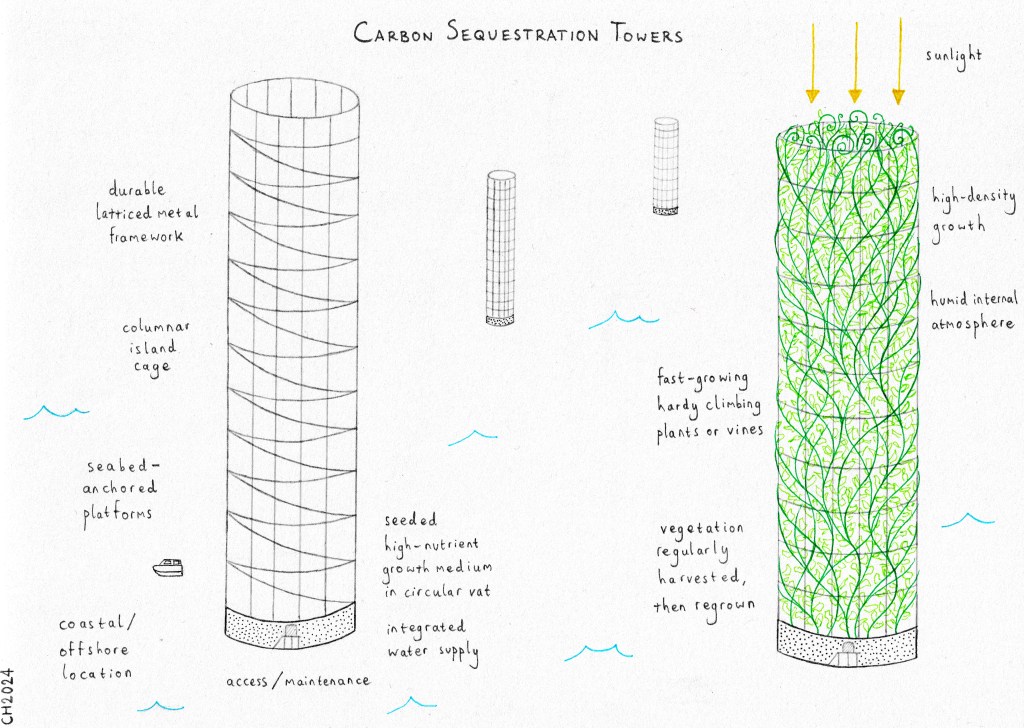 CARBON SEQUESTRATION TOWERS
sunlight
durable
latticed metal
framework
high-density
growth
columnar
island
cage
humid internal
atmosphere
fast-growing
hardy climbing
plants or vines
seabed-
anchored
platforms
seeded
high-nutrient
growth medium
in circular vat
vegetation
regularly
harvested,
then regrown
coastal/
offshore
location
integrated
water supply
access/maintenance
CH2024